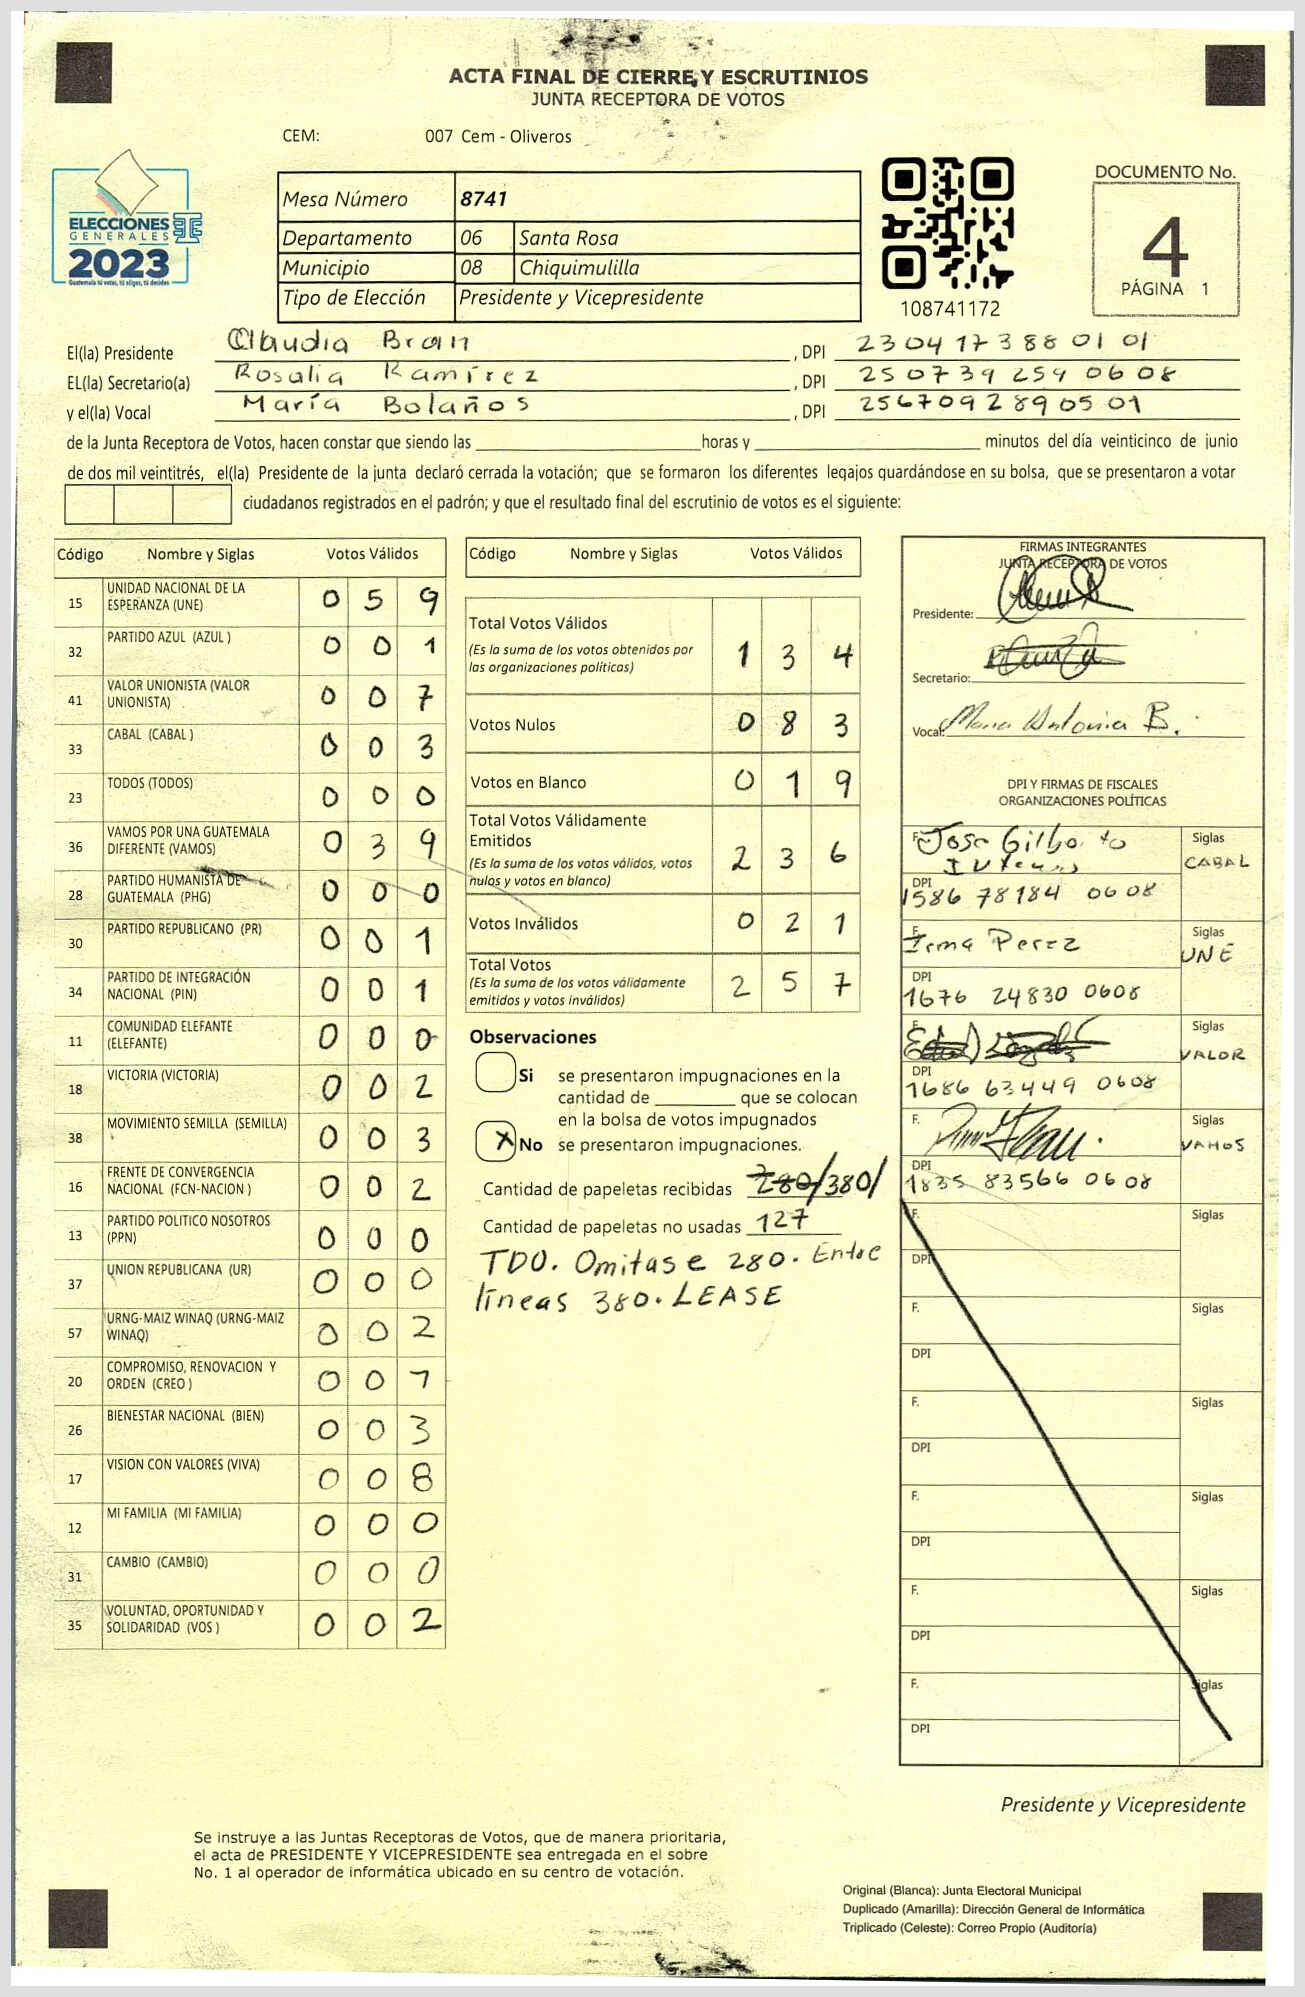 ACTA FINAL DE CIERRE Y ESCRUTINIOS
JUNTA RECEPTORA DE VOTOS
CEM: 007 Cem - Oliveros
ELECCIONES
GENERALES
2023
Guatemala tú votas, tú eliges, tú decides
Mesa Número 8741
Departamento 06 Santa Rosa
Municipio 08 Chiquimulilla
Tipo de Elección Presidente y Vicepresidente
108741172
DOCUMENTO No.
4
PÁGINA 1
El(la) Presidente Claudia Bran , DPI 2304173880101
EL(la) Secretario(a) Rosalia Ramírez , DPI 2507392590608
y el(la) Vocal María Bolaños , DPI 2567092890501
de la Junta Receptora de Votos, hacen constar que siendo las horas y minutos del día veinticinco de junio
de dos mil veintitrés, el(la) Presidente de la junta declaró cerrada la votación; que se formaron los diferentes legajos guardándose en su bolsa, que se presentaron a votar
ciudadanos registrados en el padrón; y que el resultado final del escrutinio de votos es el siguiente:
Código Nombre y Siglas Votos Válidos
15 UNIDAD NACIONAL DE LA ESPERANZA (UNE) 0 5 9
32 PARTIDO AZUL (AZUL ) 0 0 1
41 VALOR UNIONISTA (VALOR UNIONISTA) 0 0 7
33 CABAL (CABAL ) 0 0 3
23 TODOS (TODOS) 0 0 0
36 VAMOS POR UNA GUATEMALA DIFERENTE (VAMOS) 0 3 9
28 PARTIDO HUMANISTA DE GUATEMALA (PHG) 0 0 0
30 PARTIDO REPUBLICANO (PR) 0 0 1
34 PARTIDO DE INTEGRACIÓN NACIONAL (PIN) 0 0 1
11 COMUNIDAD ELEFANTE (ELEFANTE) 0 0 0
18 VICTORIA (VICTORIA) 0 0 2
38 MOVIMIENTO SEMILLA (SEMILLA) 0 0 3
16 FRENTE DE CONVERGENCIA NACIONAL (FCN-NACION ) 0 0 2
13 PARTIDO POLITICO NOSOTROS (PPN) 0 0 0
37 UNION REPUBLICANA (UR) 0 0 0
57 URNG-MAIZ WINAQ (URNG-MAIZ WINAQ) 0 0 2
20 COMPROMISO, RENOVACION Y ORDEN (CREO ) 0 0
26 BIENESTAR NACIONAL (BIEN) 0 0 3
17 VISION CON VALORES (VIVA) 0 0 8
12 MI FAMILIA (MI FAMILIA) 0 0 0
31 CAMBIO (CAMBIO) 0 0 0
35 VOLUNTAD, OPORTUNIDAD Y SOLIDARIDAD (VOS ) 0 0 2
Código Nombre y Siglas Votos Válidos
Total Votos Válidos 1 3 4
(Es la suma de los votos obtenidos por
las organizaciones políticas)
Votos Nulos 0 8 3
Votos en Blanco 0 1 9
Total Votos Válidamente
Emitidos 2 3 6
(Es la suma de los votos válidos, votos
nulos y votos en blanco)
Votos Inválidos 0 2 1
Total Votos 2 5 7
(Es la suma de los votos válidamente
emitidos y votos inválidos)
Observaciones
Si se presentaron impugnaciones en la
cantidad de que se colocan
en la bolsa de votos impugnados
X No se presentaron impugnaciones.
Cantidad de papeletas recibidas 280/380/
Cantidad de papeletas no usadas 127
TDO. Omitase 280. Entre
líneas 380. LEASE
FIRMAS INTEGRANTES
JUNTA RECEPTORA DE VOTOS
Presidente:
Secretario:
Vocal: Maria Antonia B.
DPI Y FIRMAS DE FISCALES
ORGANIZACIONES POLÍTICAS
F. Siglas CABAL
DPI 1586 78184 0608
F. Irma Perez Siglas UNE
DPI 1676 24830 0608
F. Siglas VALOR
DPI 1686 63449 0608
F. Siglas VAMOS
DPI 1835 83566 0608
F. Siglas
DPI
F. Siglas
DPI
F. Siglas
DPI
F. Siglas
DPI
F. Siglas
DPI
F. Siglas
DPI
Presidente y Vicepresidente
Se instruye a las Juntas Receptoras de Votos, que de manera prioritaria,
el acta de PRESIDENTE Y VICEPRESIDENTE sea entregada en el sobre
No. 1 al operador de informática ubicado en su centro de votación.
Original (Blanca): Junta Electoral Municipal
Duplicado (Amarilla): Dirección General de Informática
Triplicado (Celeste): Correo Propio (Auditoría)